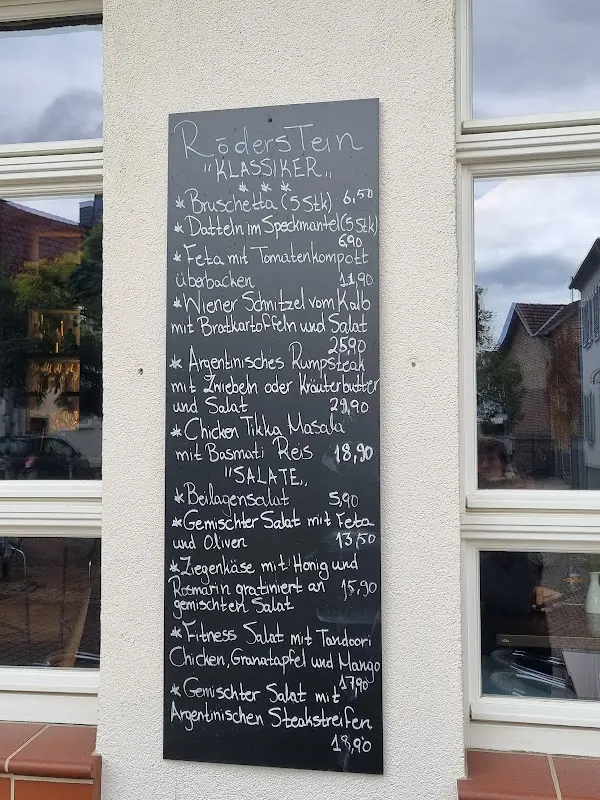 RödersTein
"KLASSIKER„
* * *
* Bruschetta (5 Stk) 6,50
* Datteln im Speckmantel (5 Stk)
6,90
* Feta mit Tomatenkompott
überbacken 11,90
* Wiener Schnitzel vom Kalb
mit Bratkartoffeln und Salat
25,90
* Argentinisches Rumpsteak
mit Zwiebeln oder Kräuterbutter
und Salat 29,90
* Chicken Tikka Masala
mit Basmati Reis 18,90
"SALATE„
* Beilagensalat 5,90
* Gemischter Salat mit Feta
und Oliven 13,50
* Ziegenkäse mit Honig und
Rosmarin gratiniert an 15,90
gemischten Salat
* Fitness Salat mit Tandoori
Chicken, Granatapfel und Mango
17,90
* Gemischter Salat mit
Argentinischen Steakstreifen
19,90